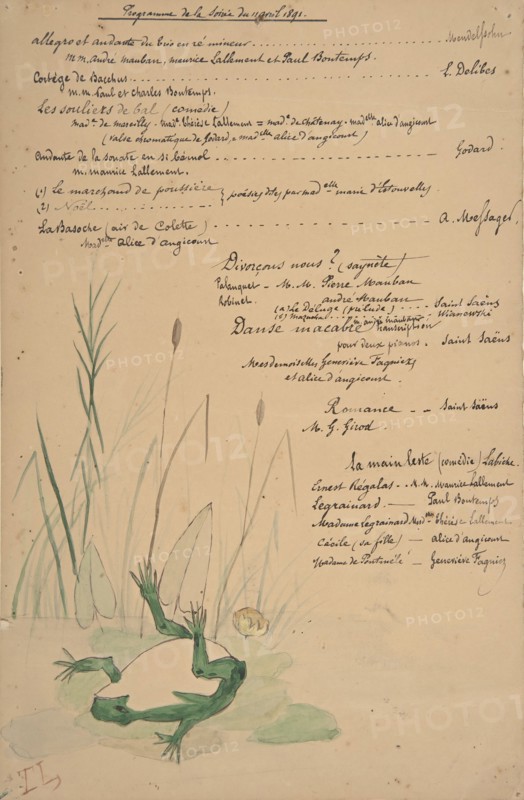 Programme de la Soirée du 11 avril 1891.
allegro et andante du trio en ré mineur Mendelsohn
m.m. andre mauban, meurice Lallement et Paul Bontemps.
Cortège de Bacchus L. Delibes
m.m. Paul et Charles Bontemps.
Les souliers de bal (comédie)
mad.e de marseilly - mad.lle thérèse Lallement = mad.e de Châtenay - mad.elle alice d'angicourt
(valse chromatique de Godard, = mad.elle alice d'angicourt)
andante de la sonate en si bémol Godard
m. maurice Lallement.
(1) Le marchand de poussière
(2) Noël } poésies dites par mad.elle marie d'Estouvelles
La Basoche (air de Colette) a. Messager
Mad.elle alice d'angicourt
Divorçons nous ? (saynète)
Palanquet - M. M. Pierre Mauban
Robinet. andre Mauban
(a) Le Déluge (prélude) Saint Saëns
(b) Mazurka Wianowski
Danse macabre transcription
pour deux pianos. Saint Saëns
Mesdemoiselles Geneviève Fagniez
et alice d'angicourt.
Romance - - Saint-Saëns
M. G. Girod.
La main leste (comédie) Labiche.
Ernest Régalas - M. Maurice Lallement
Legrainard — Paul Bontemps
Madame Legrainard Mad.elle thérèse Lallement
Cécile (sa fille) — alice d'angicourt
Madame de Pontmêlé — Geneviève Fagniez
TL
PHOTO12